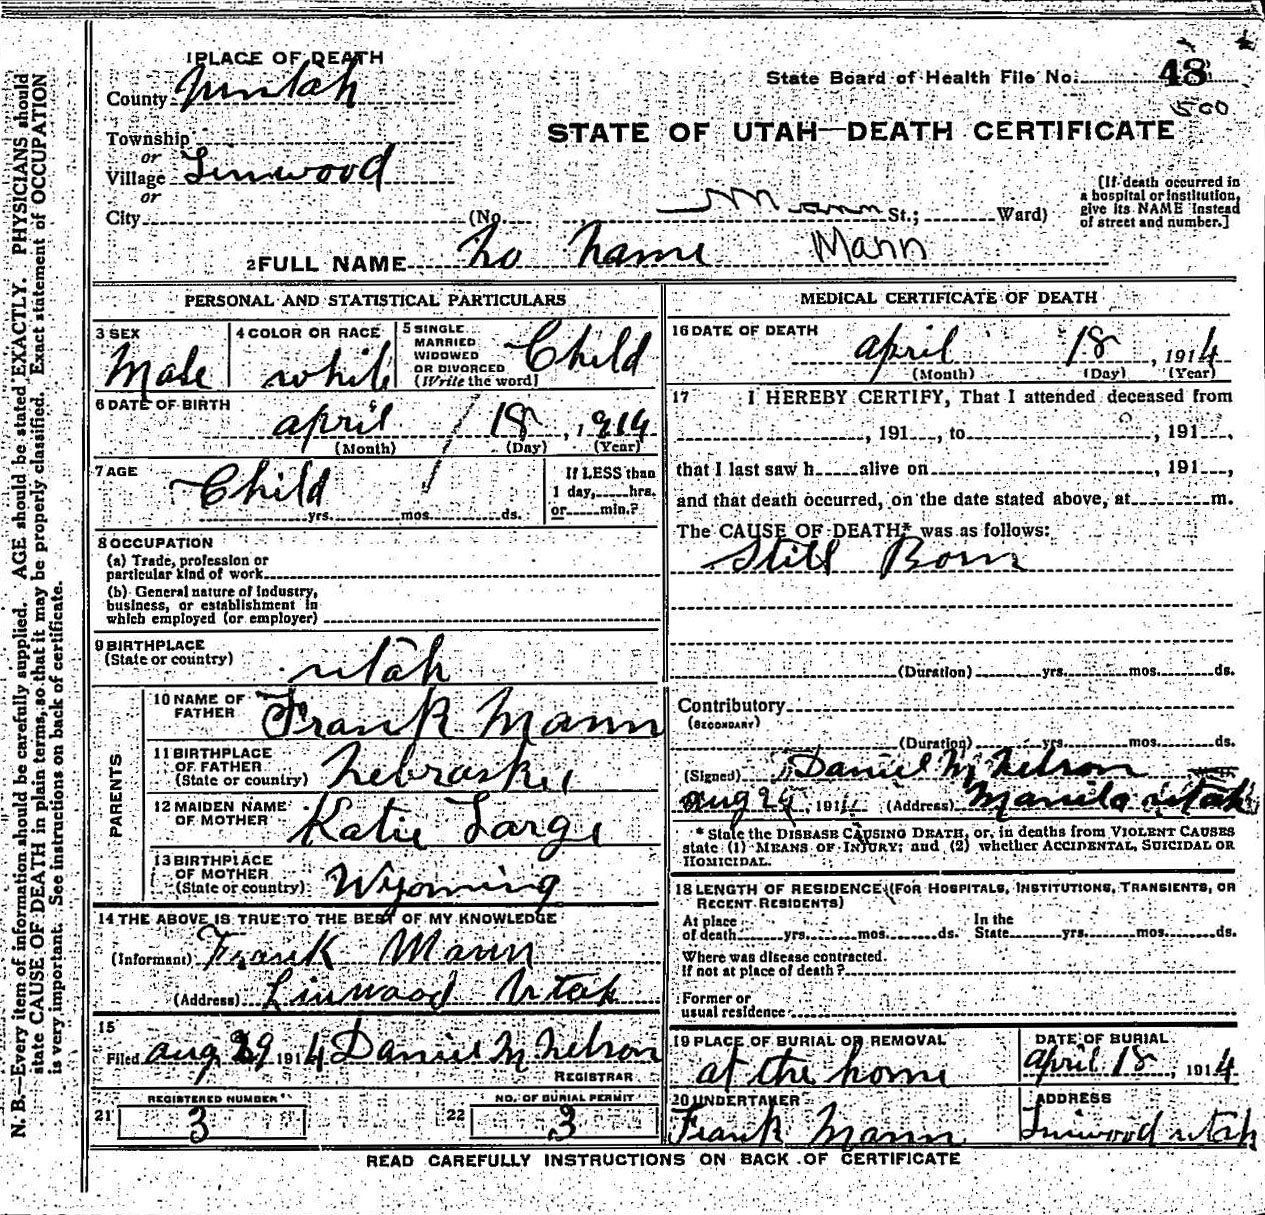 1 PLACE OF DEATH
County Uintah
State Board of Health File No. 48
500
STATE OF UTAH—DEATH CERTIFICATE
Township
or
Village Linwood
or
City (No. Mann St.; Ward)
[If death occurred in
a hospital or institution,
give its NAME instead
of street and number.]
2 FULL NAME No Name Mann
PERSONAL AND STATISTICAL PARTICULARS
3 SEX
Male
4 COLOR OR RACE
White
5 SINGLE
MARRIED
WIDOWED
OR DIVORCED
(Write the word)
Child
6 DATE OF BIRTH
april 18, 1914
(Month) (Day) (Year)
7 AGE
Child
yrs. mos. ds.
If LESS than
1 day, hrs.
or min.?
8 OCCUPATION
(a) Trade, profession or
particular kind of work
(b) General nature of Industry,
business, or establishment in
which employed (or employer)
9 BIRTHPLACE
(State or country)
Utah
PARENTS
10 NAME OF
FATHER
Frank Mann
11 BIRTHPLACE
OF FATHER
(State or country)
Nebraska
12 MAIDEN NAME
OF MOTHER
Katie Large
13 BIRTHPLACE
OF MOTHER
(State or country)
Wyoming
14 THE ABOVE IS TRUE TO THE BEST OF MY KNOWLEDGE
(Informant) Frank Mann
(Address) Linwood Utah
15
Filed aug 29 1914 Daniel M Nelson
REGISTRAR
21 REGISTERED NUMBER
3
22 NO. OF BURIAL PERMIT
3
MEDICAL CERTIFICATE OF DEATH
16 DATE OF DEATH
april 18, 1914
(Month) (Day) (Year)
17 I HEREBY CERTIFY, That I attended deceased from
, 191 , to , 191 ,
that I last saw h alive on , 191 ,
and that death occurred, on the date stated above, at m.
The CAUSE OF DEATH* was as follows:
Still Born
(Duration) yrs. mos. ds.
Contributory
(SECONDARY)
(Duration) yrs. mos. ds.
(Signed) Daniel M Nelson
aug 29, 1914 (Address) Manila Utah
* State the DISEASE CAUSING DEATH, or, in deaths from VIOLENT CAUSES
state (1) MEANS OF INJURY; and (2) whether ACCIDENTAL, SUICIDAL OR
HOMICIDAL.
18 LENGTH OF RESIDENCE (FOR HOSPITALS, INSTITUTIONS, TRANSIENTS, OR
RECENT RESIDENTS)
At place
of death yrs. mos. ds.
In the
State yrs. mos. ds.
Where was disease contracted.
if not at place of death?
Former or
usual residence
19 PLACE OF BURIAL OR REMOVAL
at the home
DATE OF BURIAL
april 18, 1914
20 UNDERTAKER
Frank Mann
ADDRESS
Linwood Utah
READ CAREFULLY INSTRUCTIONS ON BACK OF CERTIFICATE
N. B.—Every item of information should be carefully supplied. AGE should be stated EXACTLY. PHYSICIANS should
state CAUSE OF DEATH in plain terms, so that it may be properly classified. Exact statement of OCCUPATION
is very important. See instructions on back of certificate.